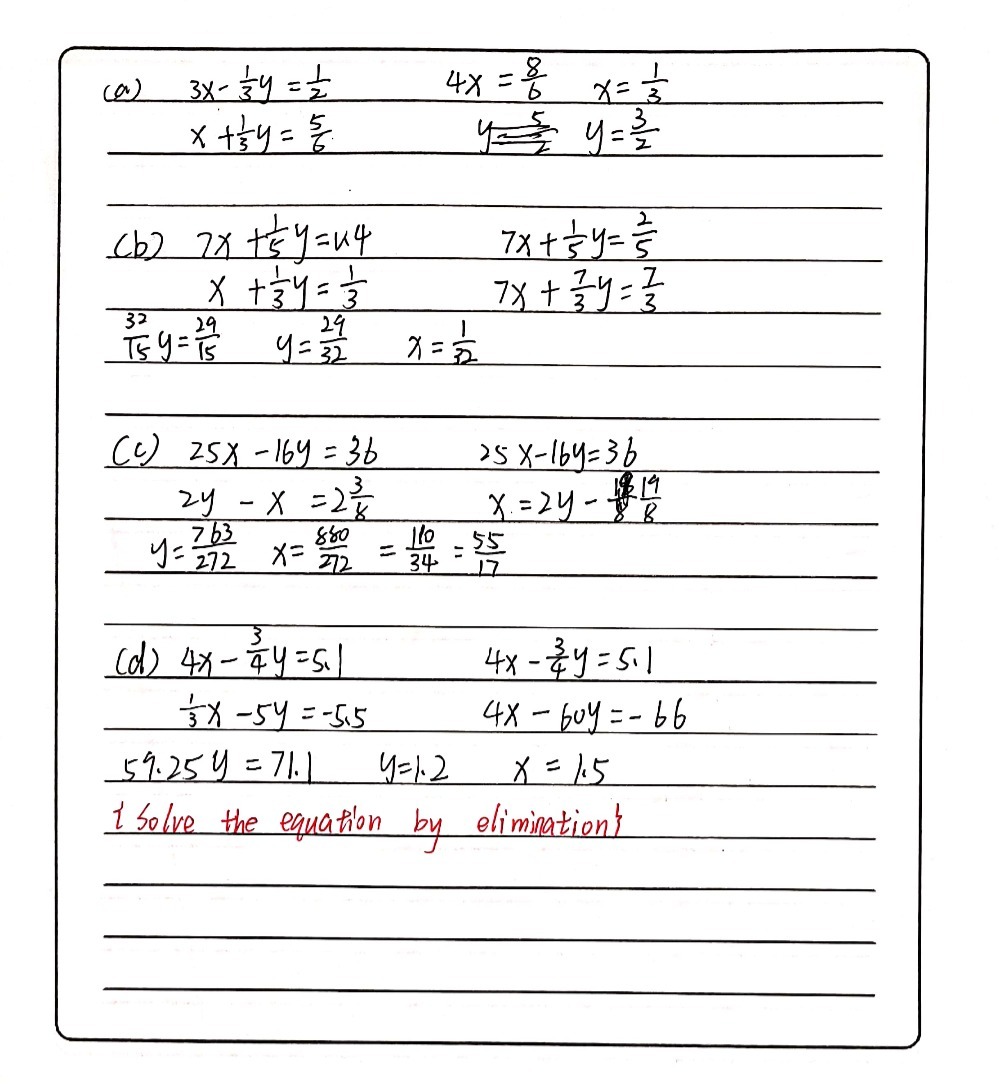 (a) 3x-1/3y=1/2 4x=8/6 x=1/3
x+1/3y=5/6 y=3/2
(b) 7x+1/5y=0.4 7x+1/5y=2/5
x+1/3y=1/3 7x+7/3y=7/3
32/15y=29/15 y=29/32 x=1/32
(c) 25x-16y=36 25x-16y=36
2y-x=2 3/8 x=2y-19/8
y=763/272 x=880/272=110/34=55/17
(d) 4x-3/4y=5.1 4x-3/4y=5.1
1/3x-5y=-5.5 4x-60y=-66
59.25y=71.1 y=1.2 x=1.5
{Solve the equation by elimination}